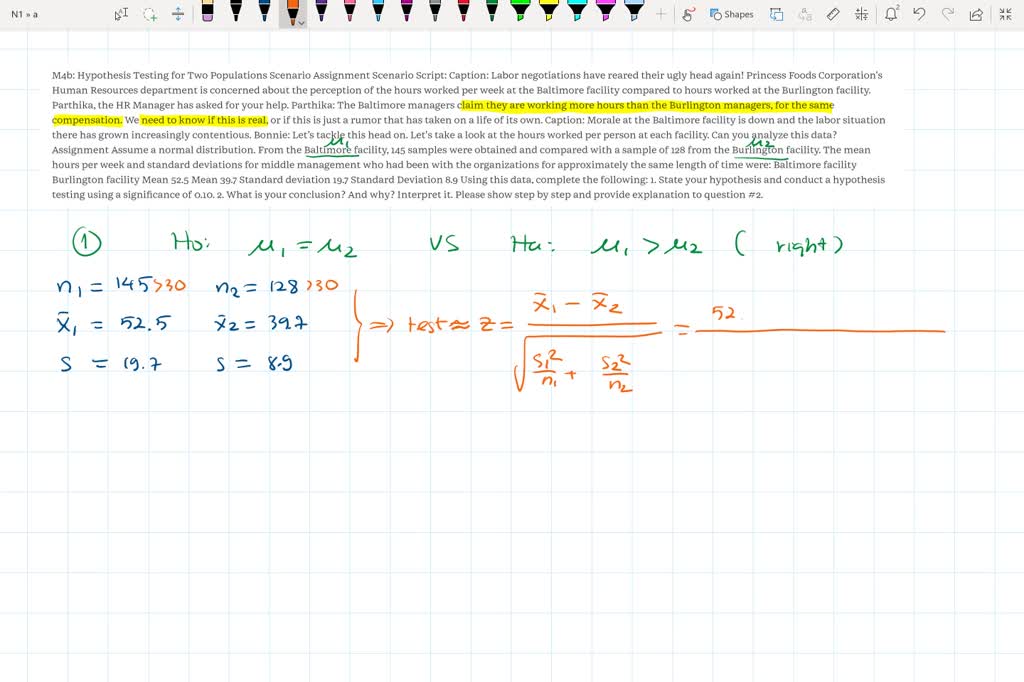 N1 » a
Shapes
M4b: Hypothesis Testing for Two Populations Scenario Assignment Scenario Script: Caption: Labor negotiations have reared their ugly head again! Princess Foods Corporation's
Human Resources department is concerned about the perception of the hours worked per week at the Baltimore facility compared to hours worked at the Burlington facility.
Parthika, the HR Manager has asked for your help. Parthika: The Baltimore managers claim they are working more hours than the Burlington managers, for the same
compensation. We need to know if this is real, or if this is just a rumor that has taken on a life of its own. Caption: Morale at the Baltimore facility is down and the labor situation
there has grown increasingly contentious. Bonnie: Let's tackle this head on. Let's take a look at the hours worked per person at each facility. Can you analyze this data?
μ1 μ2
Assignment Assume a normal distribution. From the Baltimore facility, 145 samples were obtained and compared with a sample of 128 from the Burlington facility. The mean
hours per week and standard deviations for middle management who had been with the organizations for approximately the same length of time were: Baltimore facility
Burlington facility Mean 52.5 Mean 39.7 Standard deviation 19.7 Standard Deviation 8.9 Using this data, complete the following: 1. State your hypothesis and conduct a hypothesis
testing using a significance of 0.10. 2. What is your conclusion? And why? Interpret it. Please show step by step and provide explanation to question #2.
① Ho: μ1 = μ2 VS Ha: μ1 > μ2 ( right )
n1 = 145 >30 n2 = 128 >30
x̄1 = 52.5 x̄2 = 39.7 ⇒ test ≈ z = (x̄1 − x̄2) / √(s1²/n1 + s2²/n2) = 52.
s = 19.7 s = 8.9